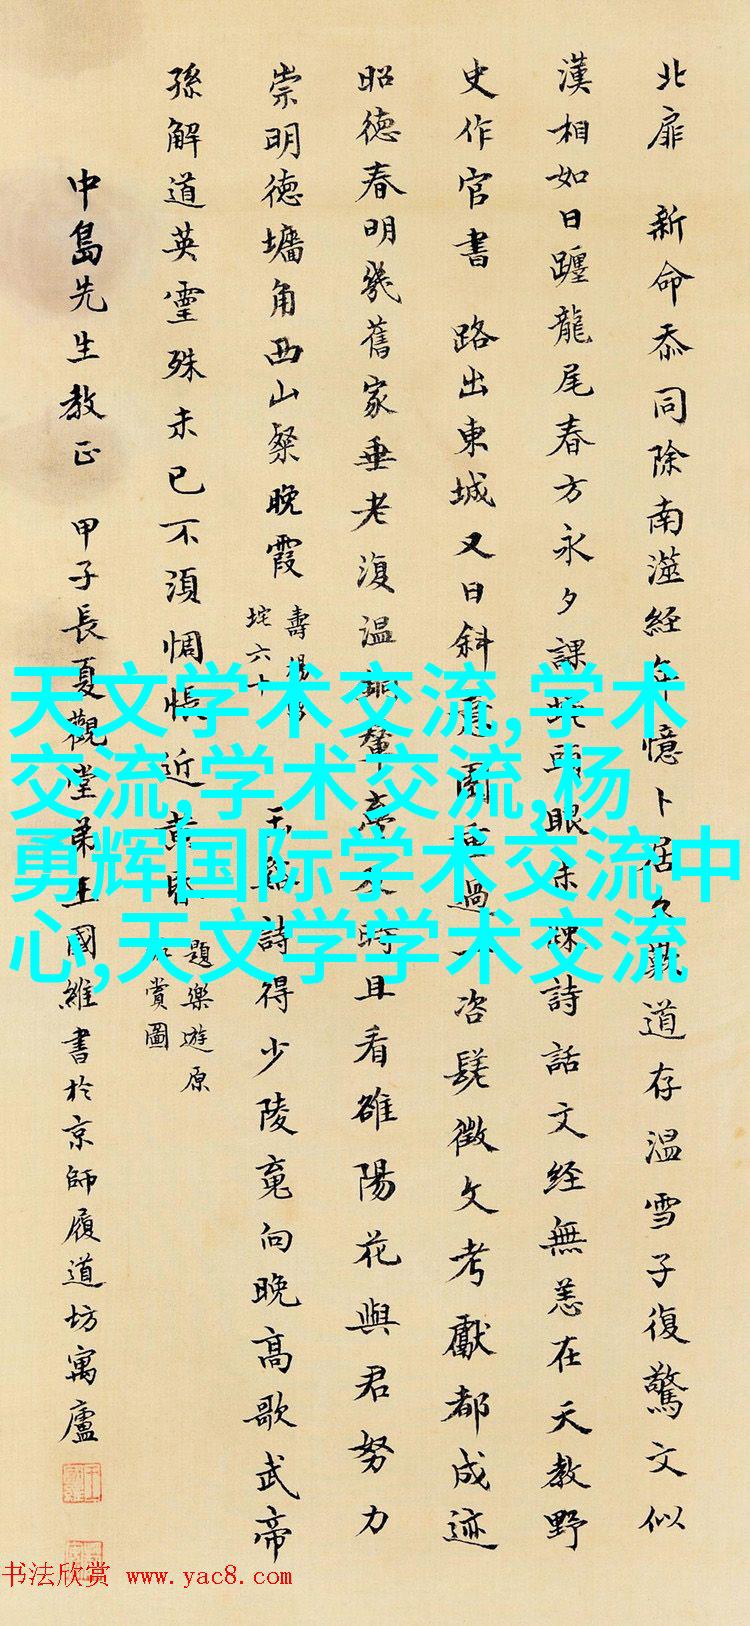 北扉 新命忝同除南澨經年憶卜居久歎道存温雪子復驚文似
漢相如日躔龍尾春方永夕課蚖頭眼未疎詩話文經無恙在天教野
史作官書 路出東城又日斜 園重過一咨嗟徵文考獻都成迹
昭德春明幾舊家垂老復温 且看雒陽花與君努力
崇明德墉角西山粲晚霞
壽 垞六十
玉谿詩得少陵 向晚高歌武帝
孫解道英靈殊未已不須惆悵近黄昏
題樂遊原 賞圖
中島先生教正 甲子長夏觀堂弟王國維書於京師履道坊寓廬
天文学术交流,学术
交流,学术交流,杨
勇辉国际学术交流中
心,天文学学术交流
书法欣赏 www.yac8.com